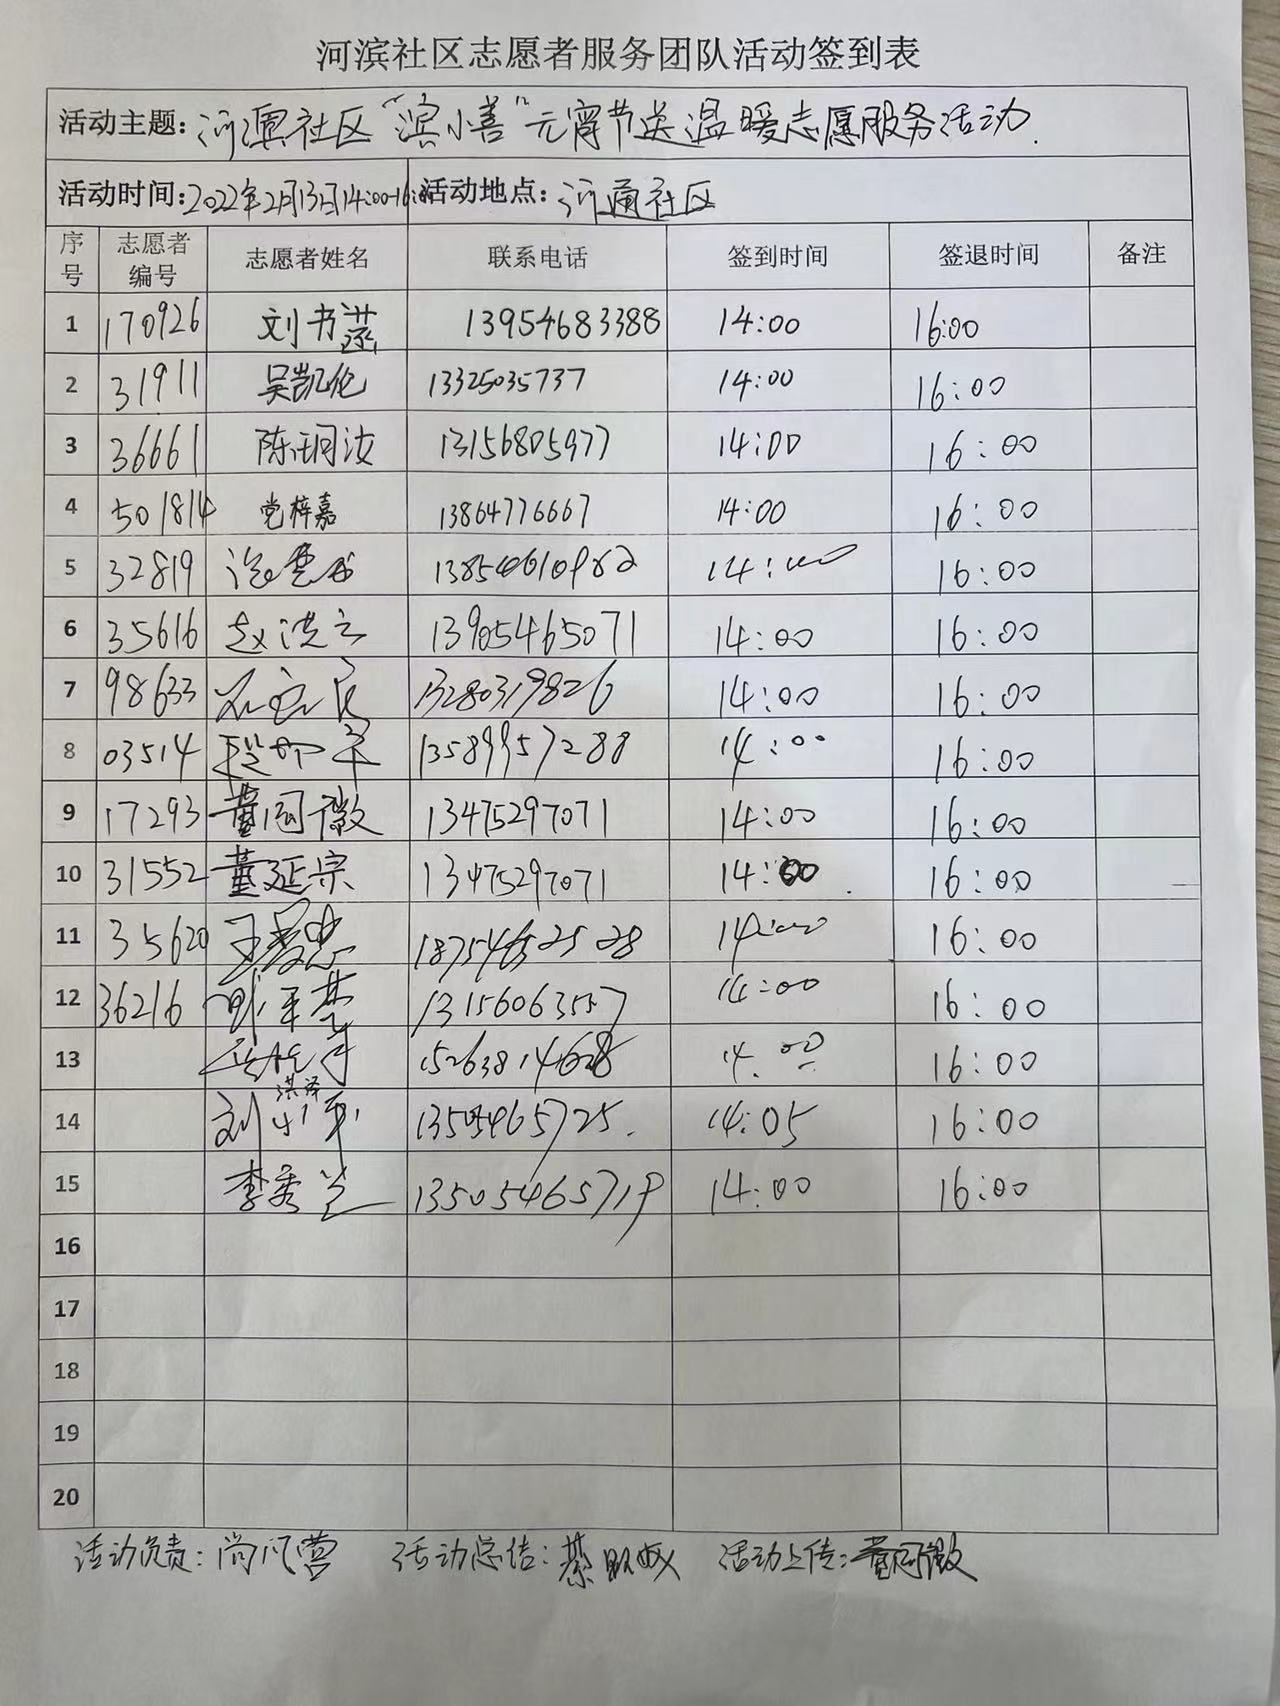 河滨社区志愿者服务团队活动签到表
活动主题:河滨社区“滨小善”元宵节送温暖志愿服务活动.
活动时间:2022年2月13日14:00-16:00 活动地点:河通社区
序号 志愿者编号 志愿者姓名 联系电话 签到时间 签退时间 备注
1 170926 刘书 13954683388 14:00 16:00
2 31911 吴凯伦 13325035737 14:00 16:00
3 36661 陈玥汝 13156805977 14:00 16:00
4 501814 党梓嘉 13864776667 14:00 16:00
5 32819 14:00 16:00
6 35616 赵洪云 13905465071 14:00 16:00
7 98633 13280319826 14:00 16:00
8 03514 13589957288 14:00 16:00
9 17293 董园徽 13475297071 14:00 16:00
10 31552 董延宗 13475297071 14:00 16:00
11 35620 王爱忠 18754652528 14:00 16:00
12 36216 13156063557 14:00 16:00
13 15263814628 14:00 16:00
14 刘 洪泽 14:05 16:00
15 李秀兰 13505465719 14:00 16:00
16
17
18
19
20
活动负责:尚风营 活动总结:綦 活动上传:董园徽